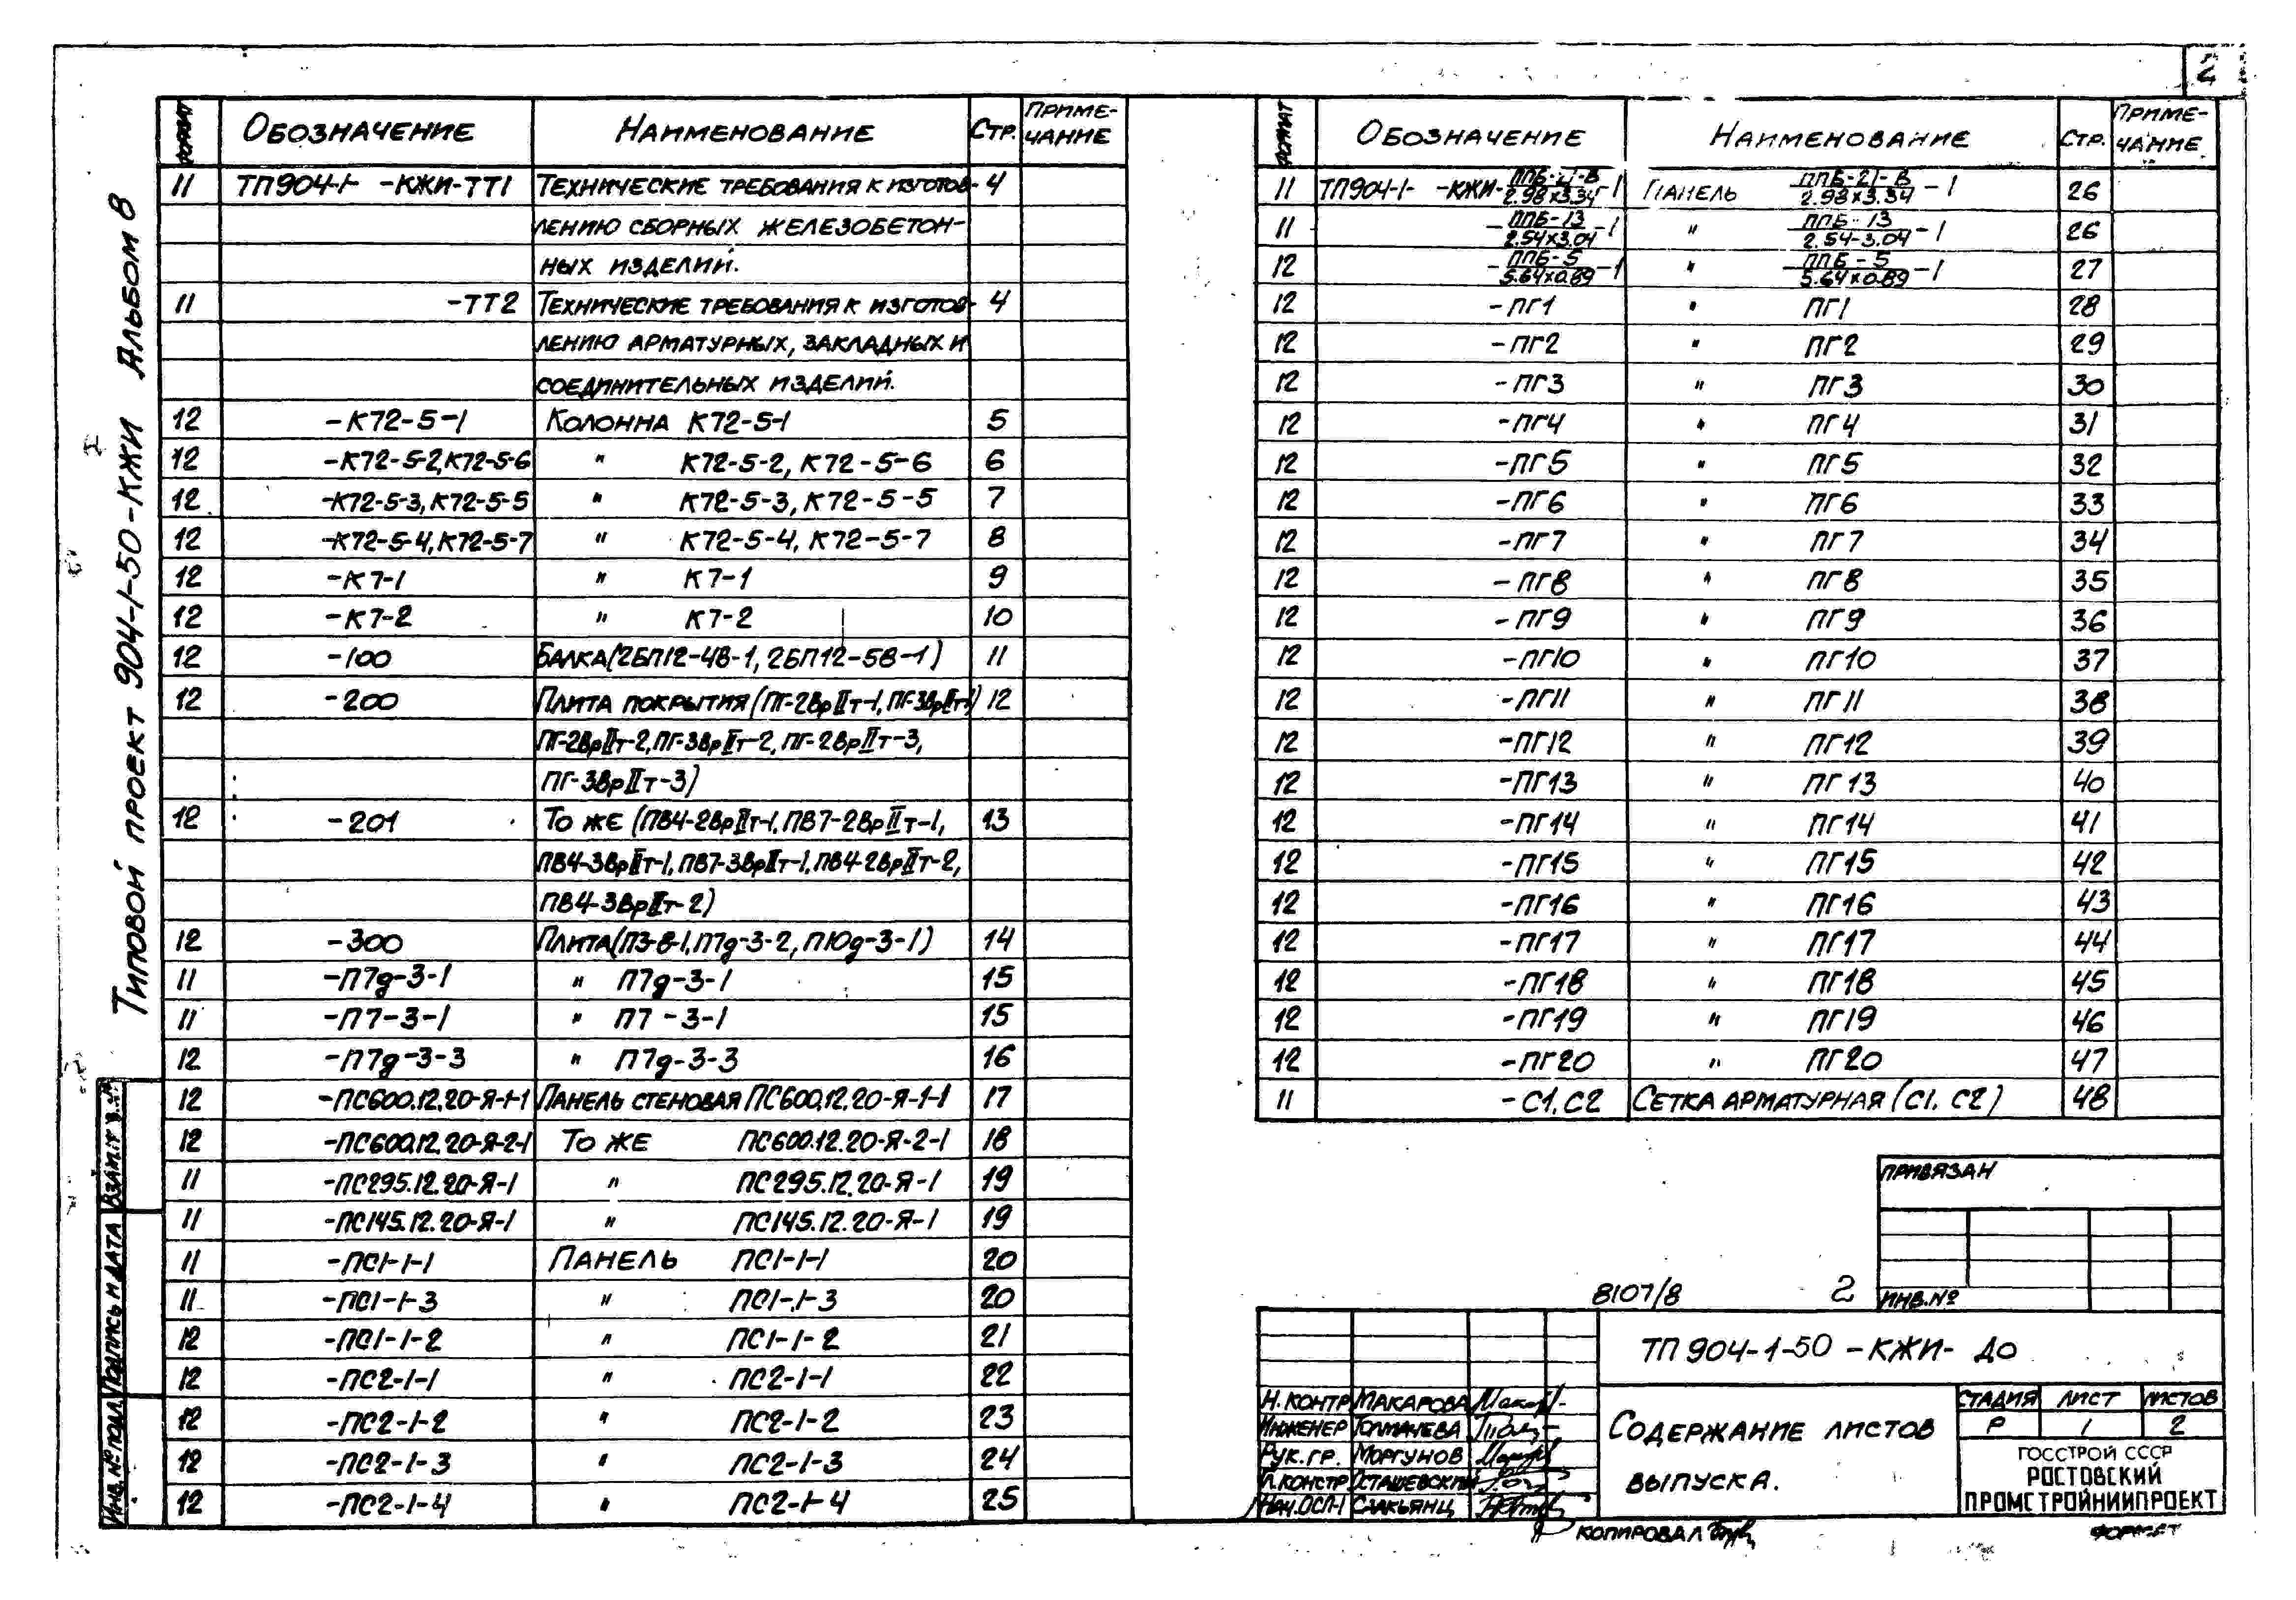 2
Типовой проект 904-1-50-КЖИ Альбом 8
Формат Обозначение Наименование Стр. Приме-
чание
11 ТП904-1- -КЖИ-ТТ1 Технические требования к изготов- 4
лению сборных железобетон-
ных изделий.
11 -ТТ2 Технические требования к изготов- 4
лению арматурных, закладных и
соединительных изделий.
12 -К72-5-1 Колонна К72-5-1 5
12 -К72-5-2, К72-5-6 " К72-5-2, К72-5-6 6
12 -К72-5-3, К72-5-5 " К72-5-3, К72-5-5 7
12 -К72-5-4, К72-5-7 " К72-5-4, К72-5-7 8
12 -К7-1 " К7-1 9
12 -К7-2 " К7-2 10
12 -100 Балка (2БП12-4В-1, 2БП12-5В-1) 11
12 -200 Плита покрытия (ПГ-2ВрIIт-1, ПГ-3ВрIIт-1) 12
ПГ-2ВрIIт-2, ПГ-3ВрIIт-2, ПГ-2ВрIIт-3,
ПГ-3ВрIIт-3)
12 -201 То же (ПВ4-2ВрIIт-1, ПВ7-2ВрIIт-1, 13
ПВ4-3ВрIIт-1, ПВ7-3ВрIIт-1, ПВ4-2ВрIIт-2,
ПВ4-3ВрIIт-2)
12 -300 Плита (П3-8-1, П7д-3-2, П10д-3-1) 14
11 -П7д-3-1 " П7д-3-1 15
11 -П7-3-1 " П7-3-1 15
12 -П7д-3-3 " П7д-3-3 16
12 -ПС600.12.20-Я-1-1 Панель стеновая ПС600.12.20-Я-1-1 17
12 -ПС600.12.20-Я-2-1 То же ПС600.12.20-Я-2-1 18
11 -ПС295.12.20-Я-1 " ПС295.12.20-Я-1 19
11 -ПС145.12.20-Я-1 " ПС145.12.20-Я-1 19
11 -ПС1-1-1 Панель ПС1-1-1 20
11 -ПС1-1-3 " ПС1-1-3 20
12 -ПС1-1-2 " ПС1-1-2 21
12 -ПС2-1-1 " ПС2-1-1 22
12 -ПС2-1-2 " ПС2-1-2 23
12 -ПС2-1-3 " ПС2-1-3 24
12 -ПС2-1-4 " ПС2-1-4 25
Взам.инв.№
Подпись и дата
Инв.№ подл.
Формат Обозначение Наименование Стр. Приме-
чание
11 ТП904-1- -КЖИ-ППБ-21-В/2.98×3.34-1 Панель ППБ-21-В/2.98×3.34-1 26
11 -ППБ-13/2.54×3.04-1 " ППБ-13/2.54-3.04-1 26
12 -ППБ-5/5.64×0.89-1 " ППБ-5/5.64×0.89-1 27
12 -ПГ1 " ПГ1 28
12 -ПГ2 " ПГ2 29
12 -ПГ3 " ПГ3 30
12 -ПГ4 " ПГ4 31
12 -ПГ5 " ПГ5 32
12 -ПГ6 " ПГ6 33
12 -ПГ7 " ПГ7 34
12 -ПГ8 " ПГ8 35
12 -ПГ9 " ПГ9 36
12 -ПГ10 " ПГ10 37
12 -ПГ11 " ПГ11 38
12 -ПГ12 " ПГ12 39
12 -ПГ13 " ПГ13 40
12 -ПГ14 " ПГ14 41
12 -ПГ15 " ПГ15 42
12 -ПГ16 " ПГ16 43
12 -ПГ17 " ПГ17 44
12 -ПГ18 " ПГ18 45
12 -ПГ19 " ПГ19 46
12 -ПГ20 " ПГ20 47
11 -С1, С2 Сетка арматурная (С1, С2) 48
Привязан
Инв.№
8107/8 2
ТП 904-1-50-КЖИ- ДО
Н.контр Макарова
Инженер Толмачева
Рук.гр. Моргунов
Гл.констр Осташевский
Нач.ОСП-1
Содержание листов
выпуска.
Стадия Лист Листов
Р 1 2
ГОССТРОЙ СССР
РОСТОВСКИЙ
ПРОМСТРОЙНИИПРОЕКТ
Копировал
Формат